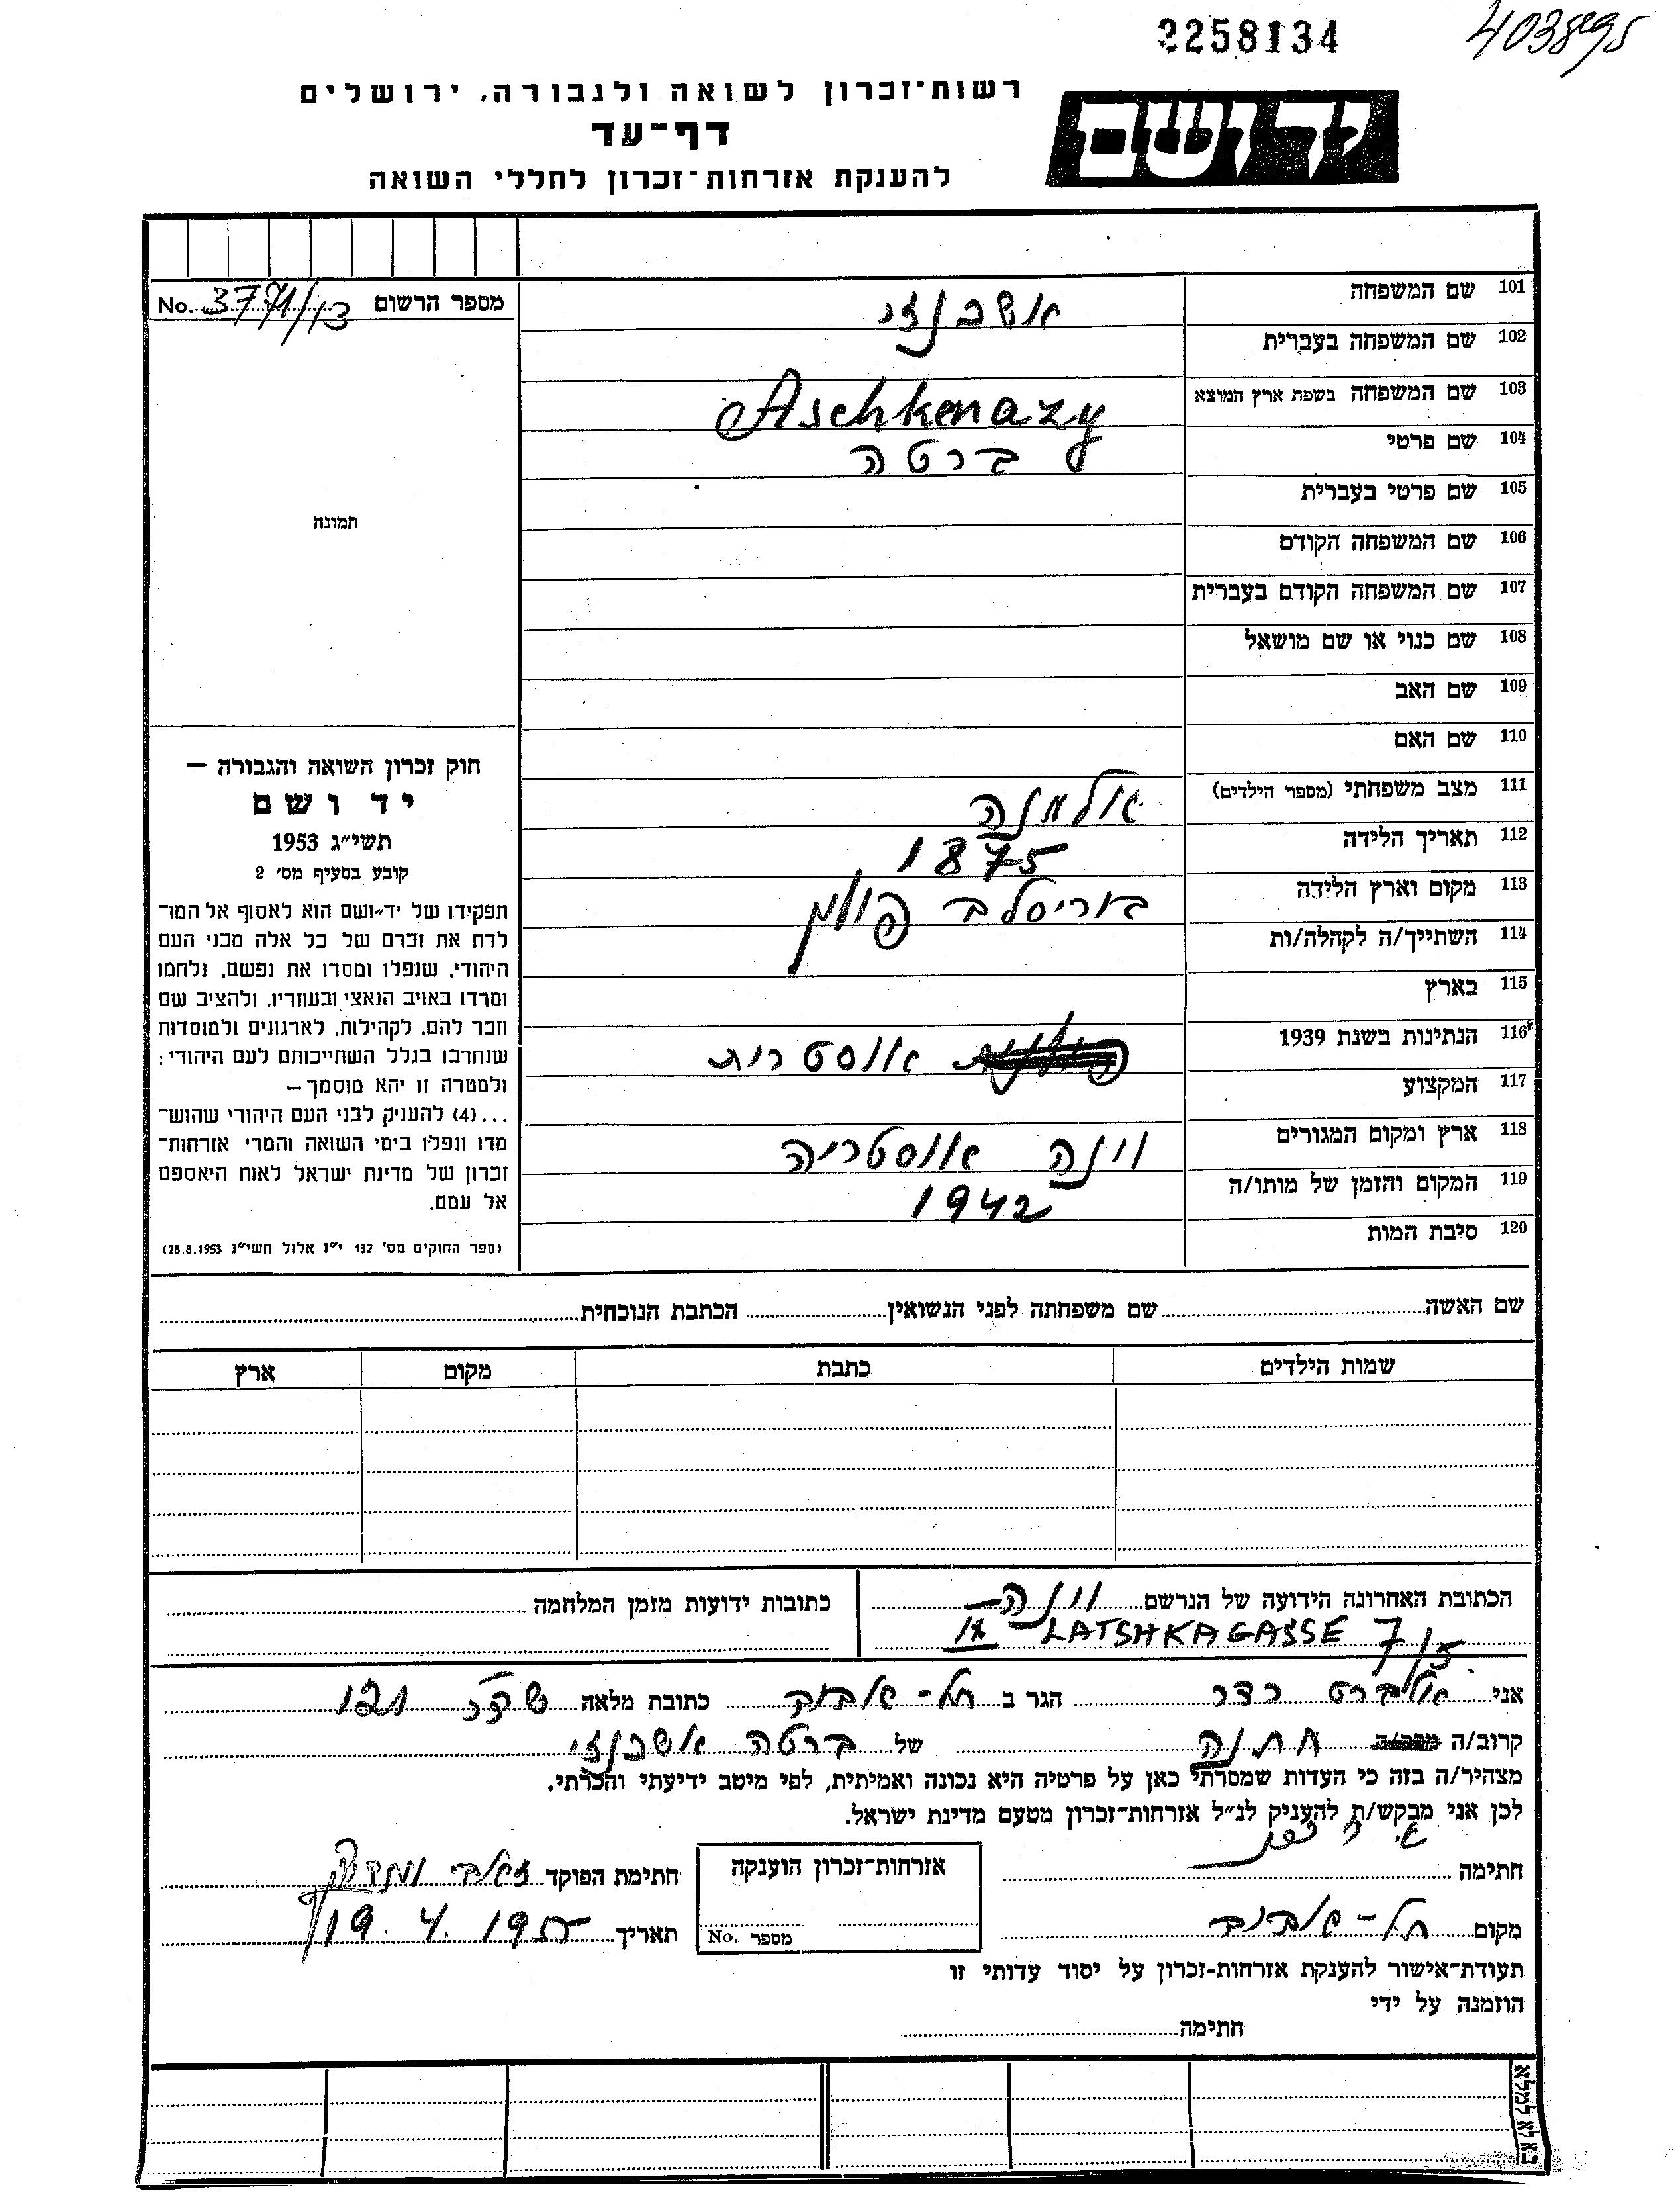 2258134
403895
רשות־זכרון לשואה ולגבורה, ירושלים
דף־עד
להענקת אזרחות־זכרון לחללי השואה
יד ושם
מספר הרשום No. 3771/13
101 שם המשפחה אשכנזי
102 שם המשפחה בעברית
103 שם המשפחה בשפת ארץ המוצא Aschkenazy
104 שם פרטי ברטה
105 שם פרטי בעברית
106 שם המשפחה הקודם
107 שם המשפחה הקודם בעברית
108 שם כנוי או שם מושאל
109 שם האב
110 שם האם
111 מצב משפחתי (מספר הילדים) אלמנה
112 תאריך הלידה 1875
113 מקום וארץ הלידה בוריסלב פולין
114 השתייך/ה לקהלה/ות
115 בארץ
116 הנתינות בשנת 1939 אוסטרית
117 המקצוע
118 ארץ ומקום המגורים וינה אוסטריה
119 המקום והזמן של מותו/ה 1942
120 סיבת המות
תמונה
חוק זכרון השואה והגבורה —
יד ושם
תשי״ג 1953
קובע בסעיף מס׳ 2
תפקידו של יד־ושם הוא לאסוף אל המו־
לדת את זכרם של כל אלה מבני העם
היהודי, שנפלו ומסרו את נפשם, נלחמו
ומרדו באויב הנאצי ובעוזריו, ולהציב שם
וזכר להם, לקהילות, לארגונים ולמוסדות
שנחרבו בגלל השתייכותם לעם היהודי;
ולמטרה זו יהא מוסמך —
...(4) להעניק לבני העם היהודי שהוש־
מדו ונפלו בימי השואה והמרי אזרחות־
זכרון של מדינת ישראל לאות היאספם
אל עמם.
(ספר החוקים מס׳ 132 י״ז אלול תשי״ג 28.8.1953)
שם האשה שם משפחתה לפני הנשואין הכתבת הנוכחית
שמות הילדים כתבת מקום ארץ
הכתובת האחרונה הידועה של הנרשם וינה
LATSHKAGASSE 7/5 IX
כתובות ידועות מזמן המלחמה
אני אלברט רדר הגר ב תל-אביב כתובת מלאה 121
קרוב/ה חתנה של ברטה אשכנזי
מצהיר/ה בזה כי העדות שמסרתי כאן על פרטיה היא נכונה ואמיתית, לפי מיטב ידיעתי והכרתי.
לכן אני מבקש/ת להעניק לנ״ל אזרחות־זכרון מטעם מדינת ישראל.
חתימה
אזרחות־זכרון הוענקה
מספר No.
חתימת הפוקד זאב
מקום תל-אביב
תאריך 19.4.1955
תעודת־אישור להענקת אזרחות-זכרון על יסוד עדותי זו
הוזמנה על ידי
חתימה
נא לא למלא